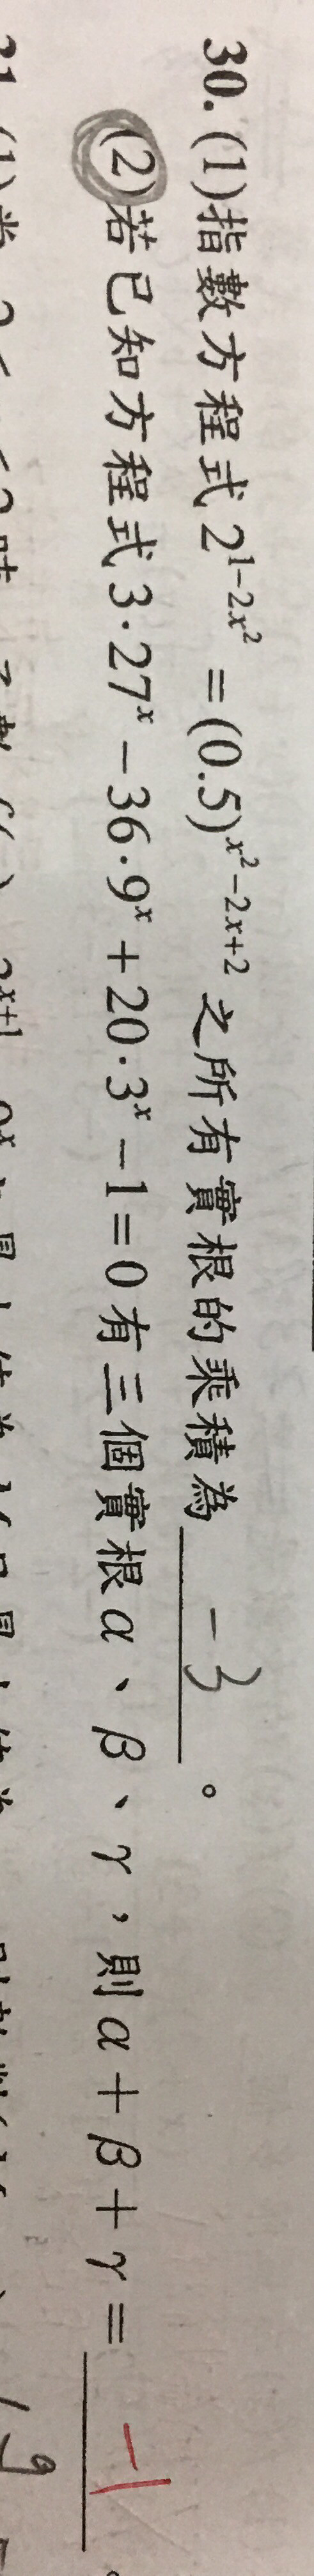 30. (1)指數方程式 2^{1-2x^2} = (0.5)^{x^2-2x+2} 之所有實根的乘積為 -3 。
(2)若已知方程式 3·27^x - 36·9^x + 20·3^x - 1 = 0 有三個實根 α、β、γ，則 α + β + γ = -1